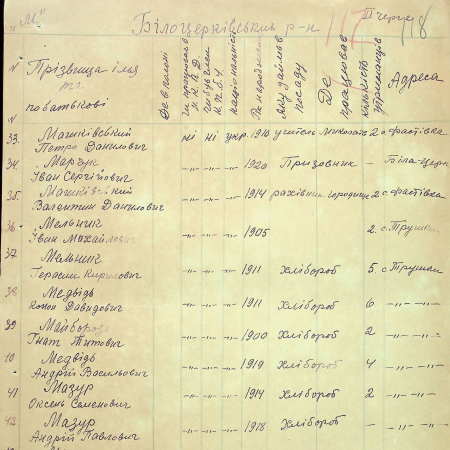 "М" Білоцерківський р-н 117 ІІ черга 118
№ Прізвища імя та по батькові Де в полоні національність Рік народження Яку займав посаду Де працював кількість утриманців Адреса
33. Машківський Петро Данилович ні ні укр. 1916 учитель 2 с. Фастівка
34. Марчук Іван Сергійович -"- -"- -"- 1920 Призовник — Біла-Церк
35. Машківський Валентин Данилович -"- -"- -"- 1914 рахівник 2 с. Фастівка
36 Мельник Іван Михайлович -"- -"- -"- 1905 2. с. Трушки
37. Мельник Герасим Кирилович -"- -"- -"- 1911 Хлібороб 5. с. Трушки
38 Медвідь Конон Давидович -"- -"- -"- 1911 Хлібороб 6 -"-
39 Майборода Гнат Титович -"- -"- -"- 1900 Хлібороб 2 -"-
10 Медвідь Андрій Васильович -"- -"- -"- 1919 Хлібороб 4 -"-
41 Мазур Оксень Семенович -"- -"- -"- 1914 Хлібороб 2 -"-
42 Мазур Андрій Павлович -"- -"- -"- 1918 Хлібороб — -"-